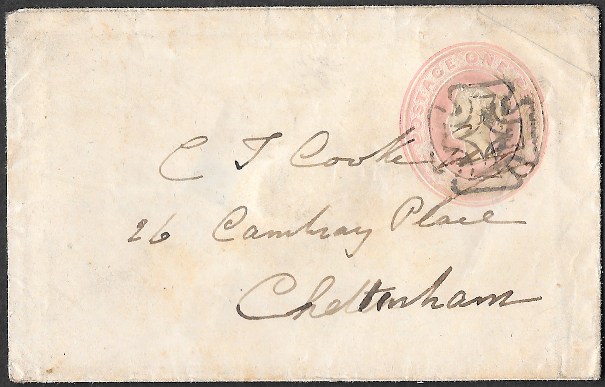 POSTAGE ONE
C J Cooke
26 Cambray Place
Cheltenham